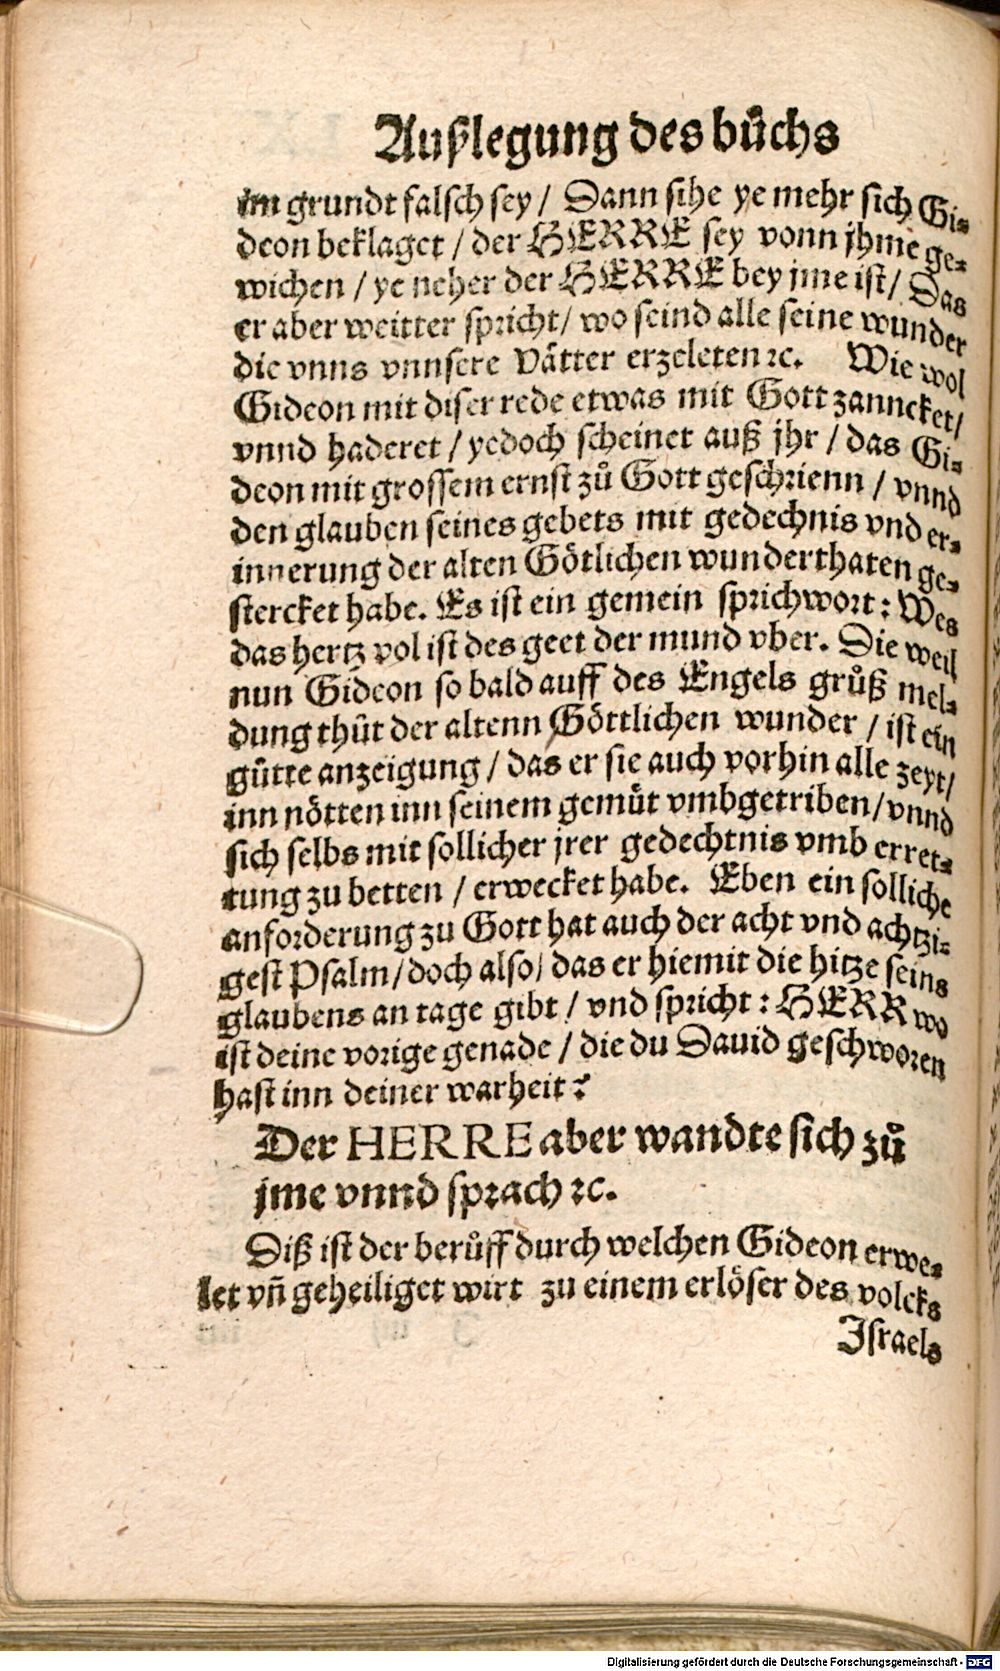 Außlegung des bůchs
im grundt falsch sey / Dann sihe ye mehr sich Gi-
deon beklaget / der HERRE sey vonn jhme ge-
wichen / ye neher der HERRE bey jme ist / Das
er aber weitter spricht / wo seind alle seine wunder
die vnns vnnsere Vätter erzeleten ꝛc. Wie wol
Gideon mit diser rede etwas mit Gott zanncket /
vnnd haderet / yedoch scheinet auß jhr / das Gi-
deon mit grossem ernst zů Gott geschrienn / vnnd
den glauben seines gebets mit gedechnis vnd er-
innerung der alten Götlichen wunderthaten ge-
stercket habe. Es ist ein gemein sprichwort : Wes
das hertz vol ist des geet der mund vber. Die weil
nun Gideon so bald auff des Engels grůß mel-
dung thůt der altenn Göttlichen wunder / ist ein
gůtte anzeigung / das er sie auch vorhin alle zeyt /
inn nötten inn seinem gemůt vmbgetriben / vnnd
sich selbs mit sollicher jrer gedechtnis vmb erret-
tung zu betten / erwecket habe. Eben ein solliche
anforderung zu Gott hat auch der acht vnd achtzi-
gest Psalm / doch also / das er hiemit die hitze seins
glaubens an tage gibt / vnd spricht : HERR wo
ist deine vorige genade / die du Dauid geschworen
hast inn deiner warheit ?
Der HERRE aber wandte sich zů
jme vnnd sprach ꝛc.
Diß ist der berůff durch welchen Gideon erwe-
let vñ geheiliget wirt zu einem erlöser des volcks
Israels
Digitalisierung gefördert durch die Deutsche Forschungsgemeinschaft - DFG